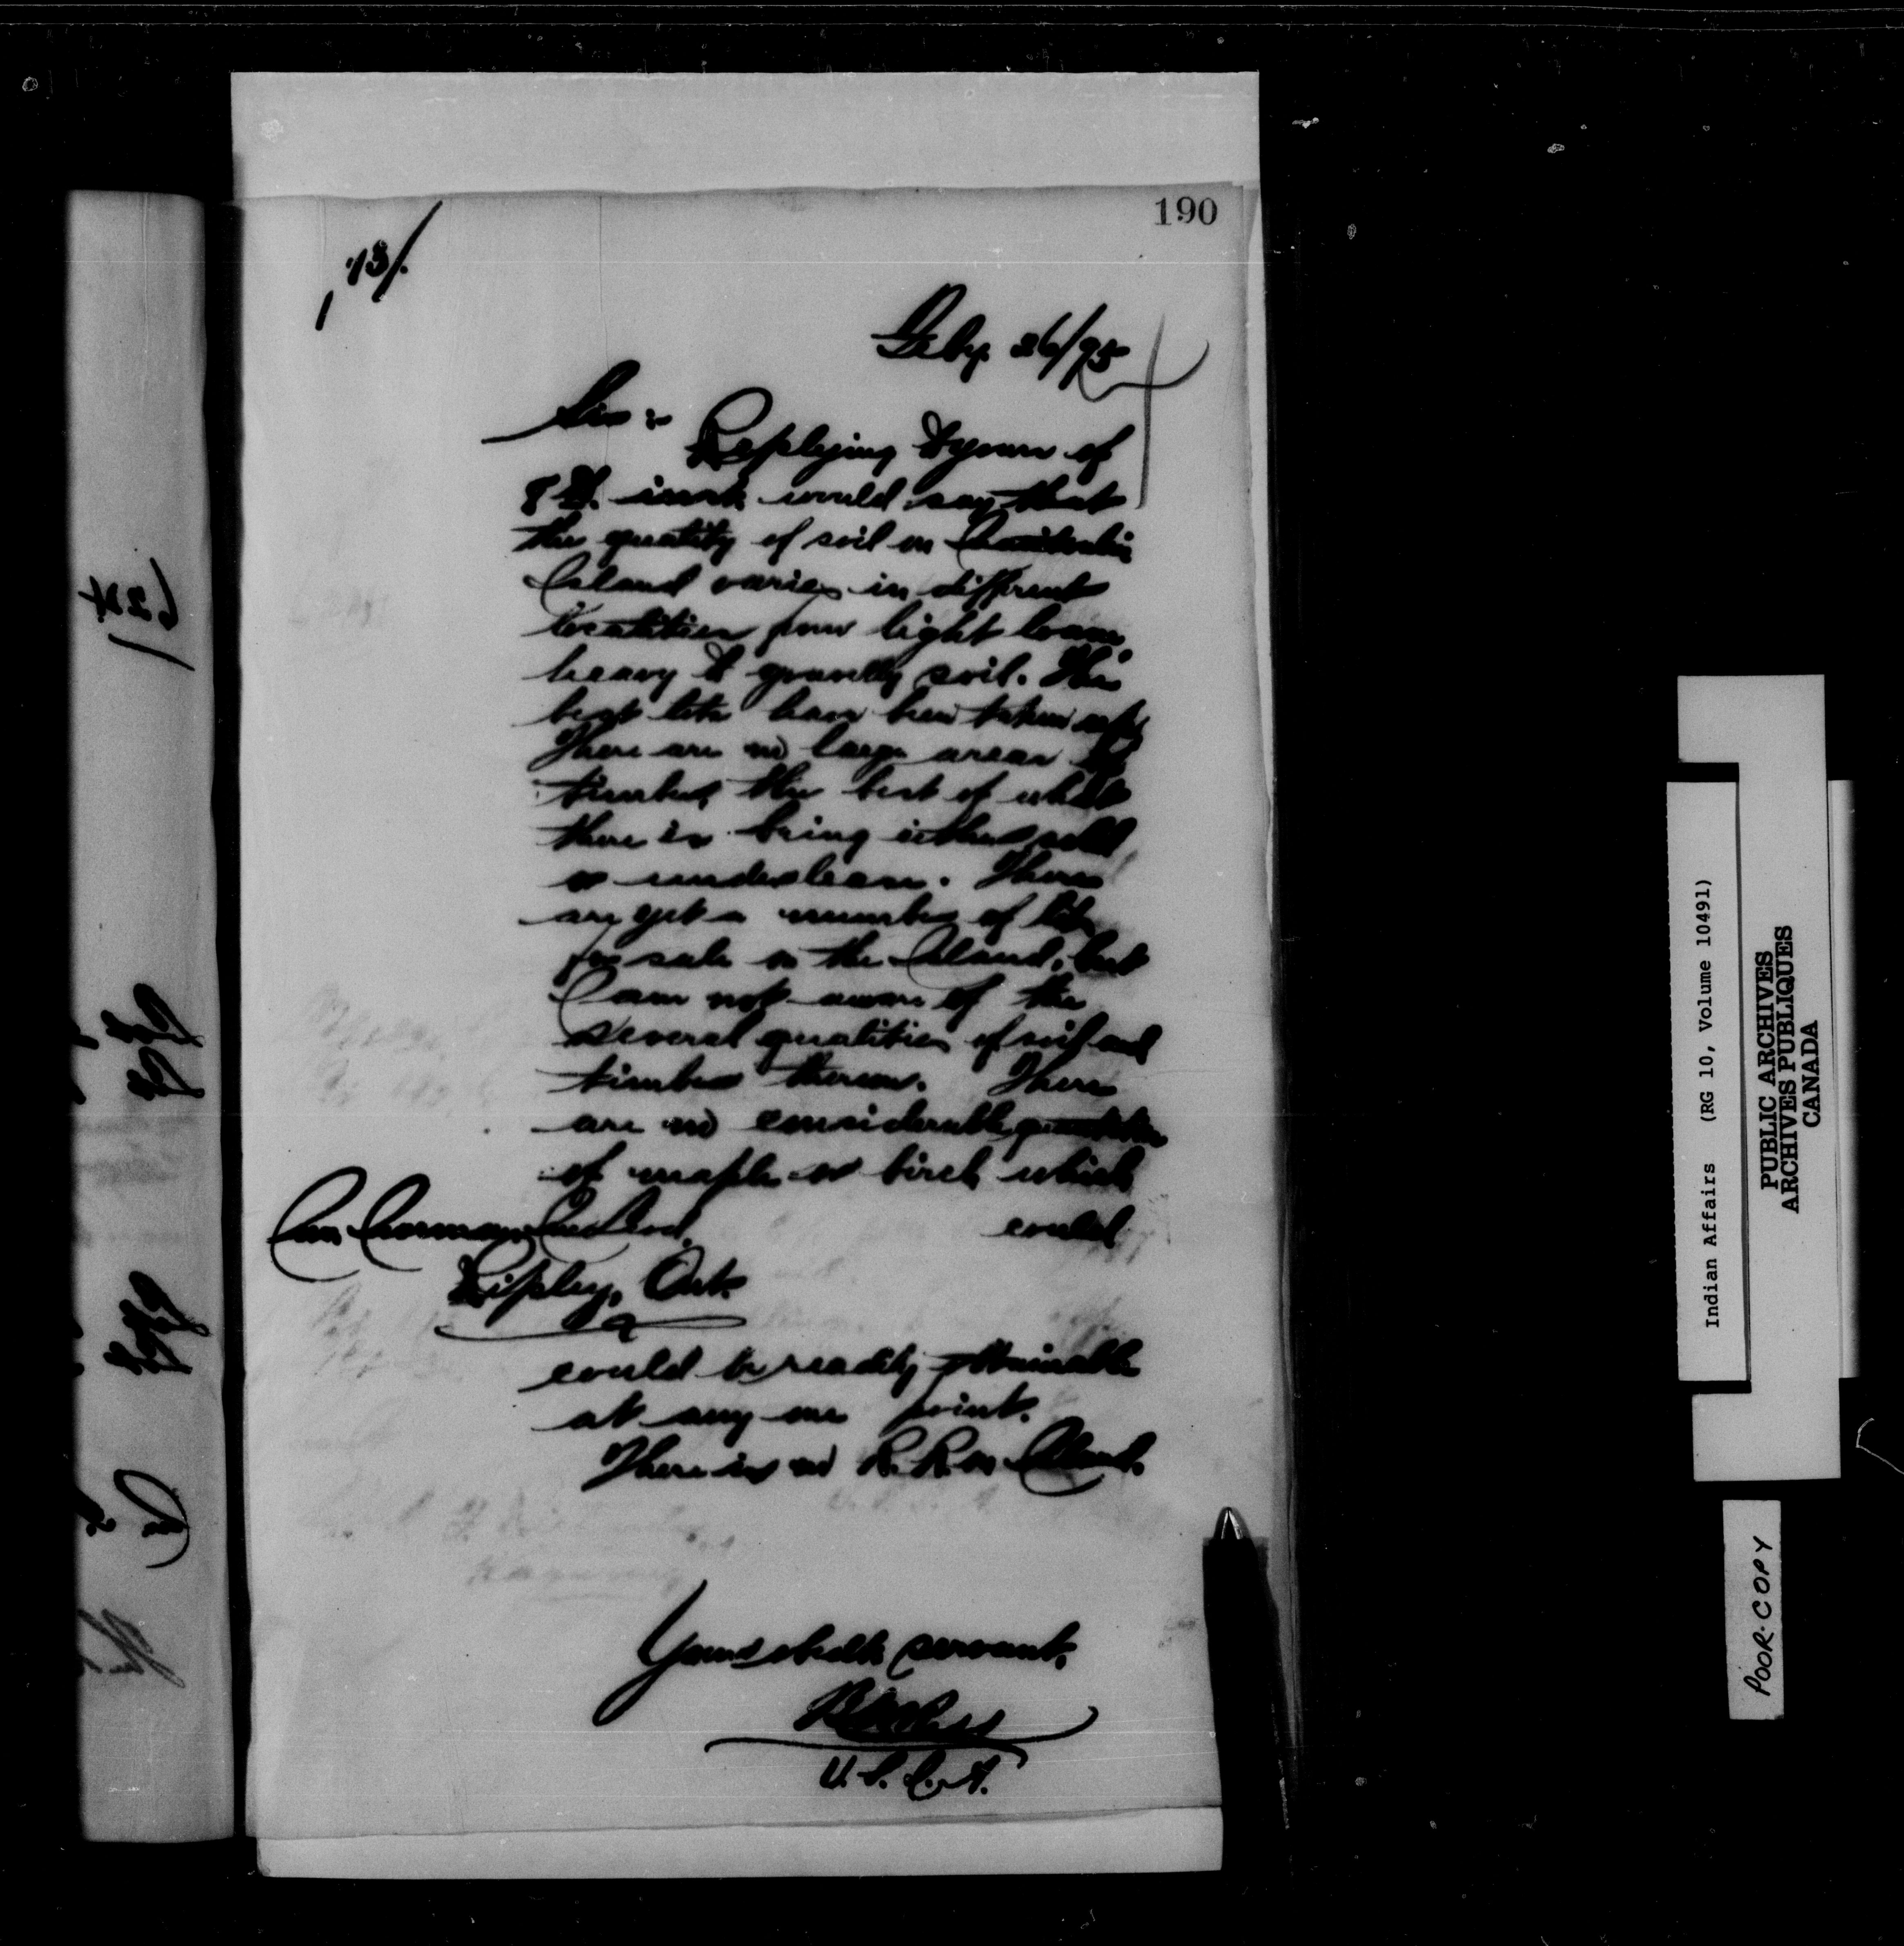 190
73/.
Feby. 26/95
Sir:
Replying to yours of
8th. inst. would say that
the quality of soil on Manitoulin
Island varies in different
localities from light loam,
heavy to gravelly soil. The
best lots have been taken up.
There are no large areas of
timber, the best of what
there is being either sold
or under lease. There
are yet a number of lots
for sale on the Island, but
I am not aware of the
several qualities of soil and
timber thereon. There
are no considerable quantities
of maple or birch which
could
Ripley, Ont.
could be readily obtainable
at any one point.
There is no R.R. on Island.
Your obedt. servant,
BWRoss
U.S.I.A.
Indian Affairs (RG 10, Volume 10491)
PUBLIC ARCHIVES
ARCHIVES PUBLIQUES
CANADA
POOR COPY